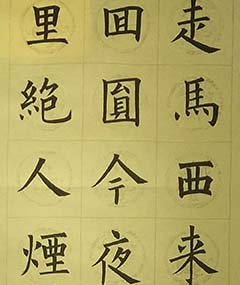 走馬西来
囬圓今夜
里絶人煙